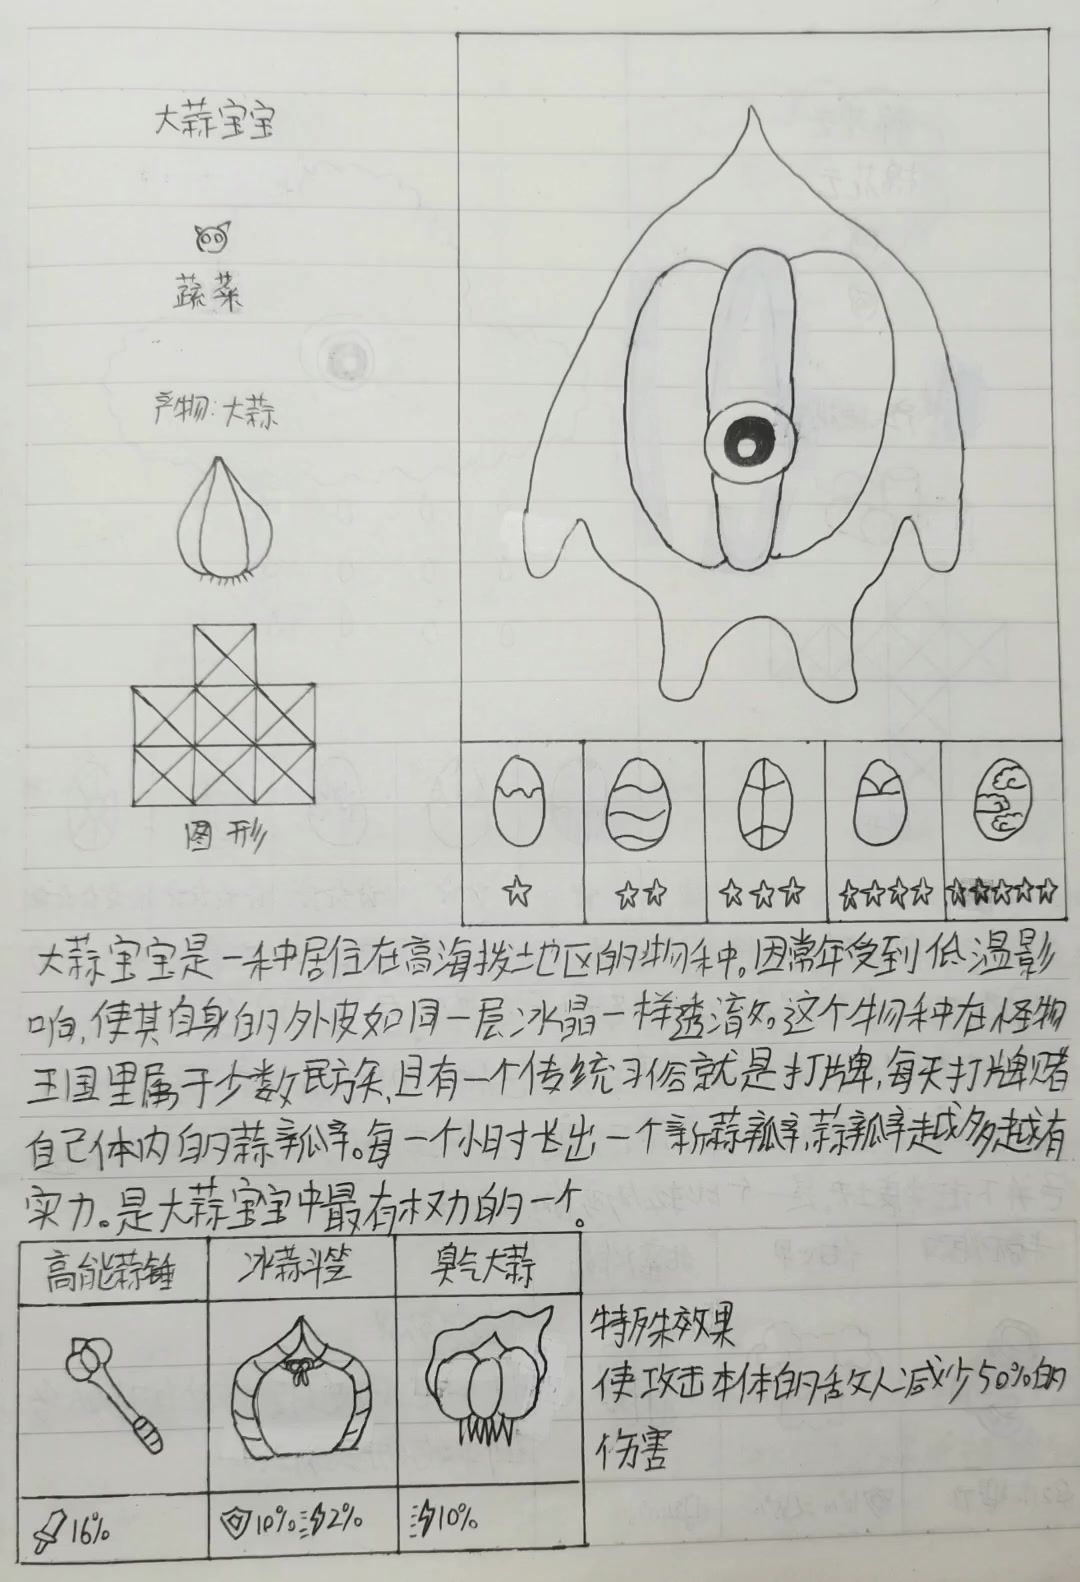 大蒜宝宝
蔬菜
产物:大蒜
图形
大蒜宝宝是一种居住在高海拨地区的物种。因常年受到低温影
响,使其自身的外皮如同一层冰晶一样透清。这个物种在怪物
王国里属于少数民族,且有一个传统习俗就是打牌,每天打牌赌
自己体内的蒜瓣。每一个小时长出一个新蒜瓣,蒜瓣越多越有
实力。是大蒜宝宝中最有权力的一个。
高能蒜锤
冰蒜斗笠
臭气大蒜
特殊效果
使攻击本体的敌人减少50%的
伤害
16%
10% 2%
10%